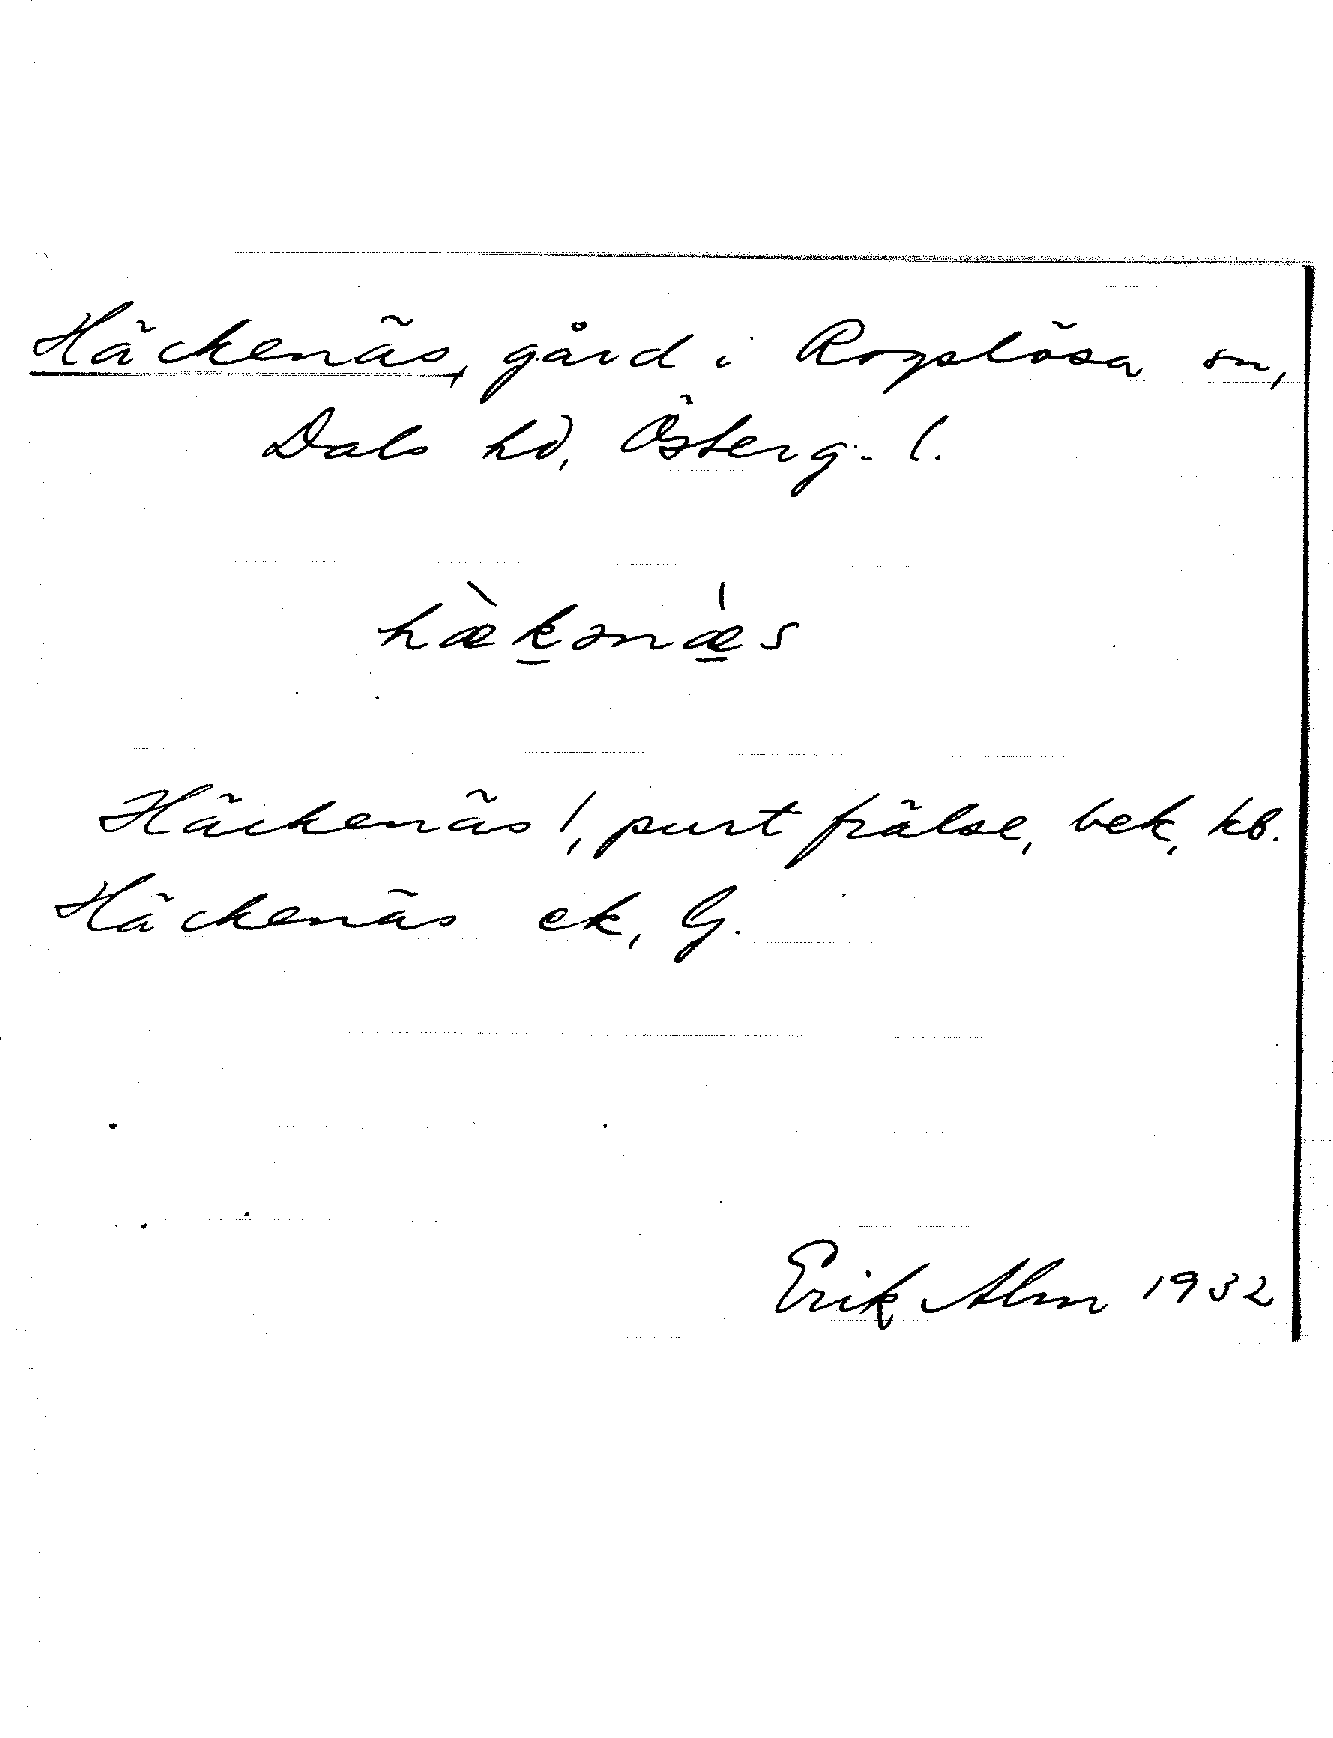 Häckenäs, gård i Rogslösa sn,
Dals hd, Österg. l.
hæ̀kənæ̍s
Häckenäs 1, purt frälse, bek, kb.
Häckenäs ek, G.
Erik Alm 1932